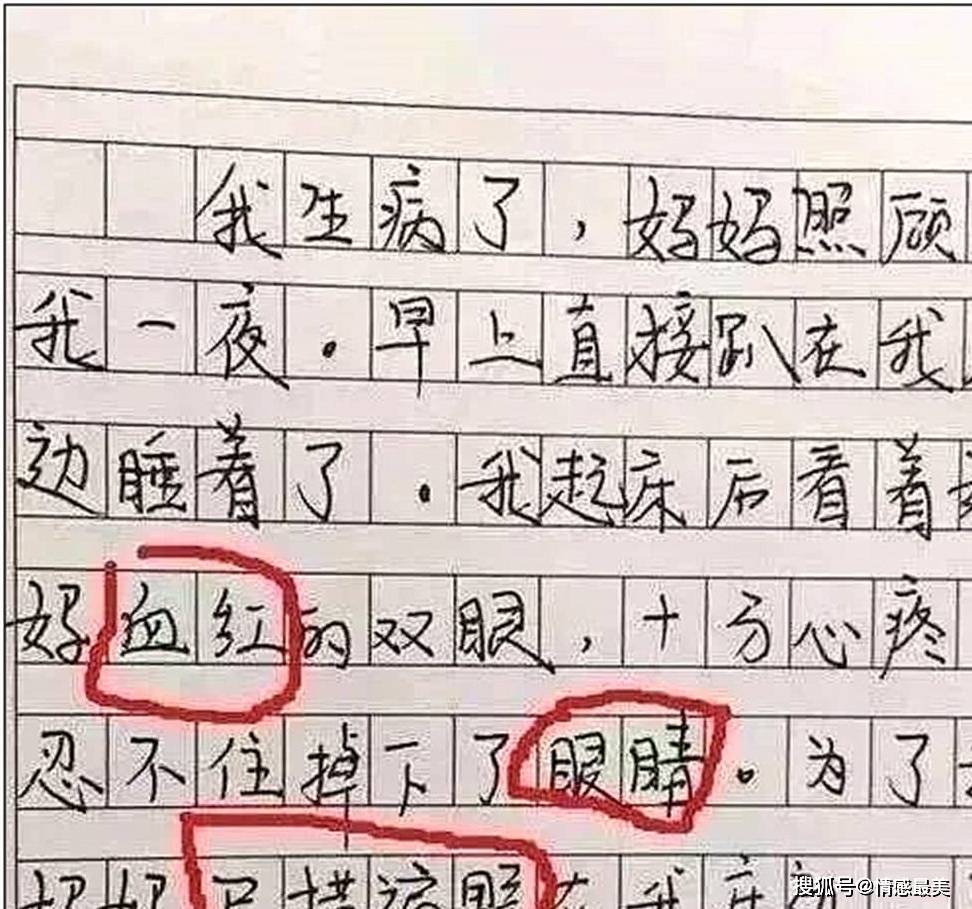 我生病了，妈妈照顾
我一夜。早上直接趴在我
边睡着了。我起床后看着
好血红的双眼，十分心疼
忍不住掉下了眼睛。为了
妈妈
在我床
搜狐号@情感最美